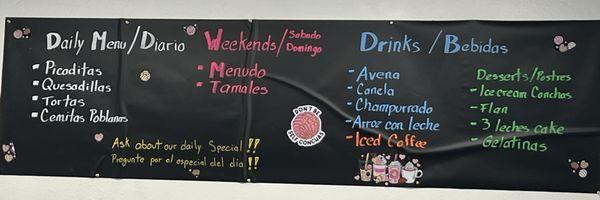 Daily Menu/Diario
- Picaditas
- Quesadillas
- Tortas
- Cemitas Poblanas
Weekends/Sabado
Domingo
- Menudo
- Tamales
Ask about our daily Special!!
Pregunte por el especial del dia!!
DON'T BE
SELF CONCHAS
Drinks/Bebidas
- Avena
- Canela
- Champurrado
- Arroz con leche
- Iced Coffee
Desserts/Postres
- Ice cream Conchas
- Flan
- 3 leches cake
- Gelatinas